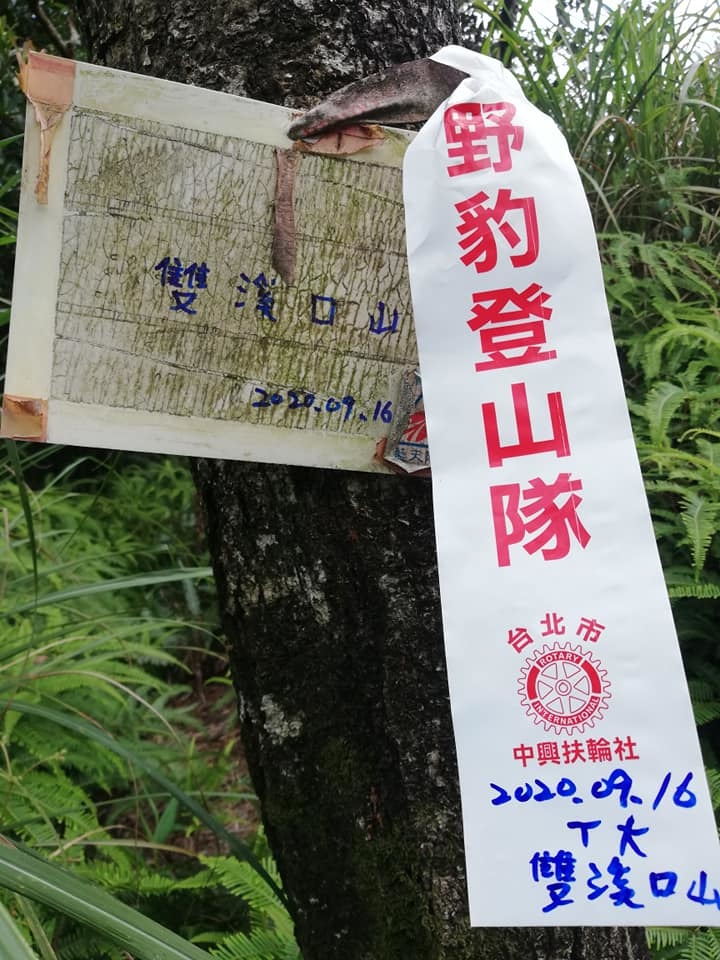 雙溪口山
2020.09.16
藍天
野豹登山隊
台北市
ROTARY
INTERNATIONAL
中興扶輪社
2020.09.16
T大
雙溪口山